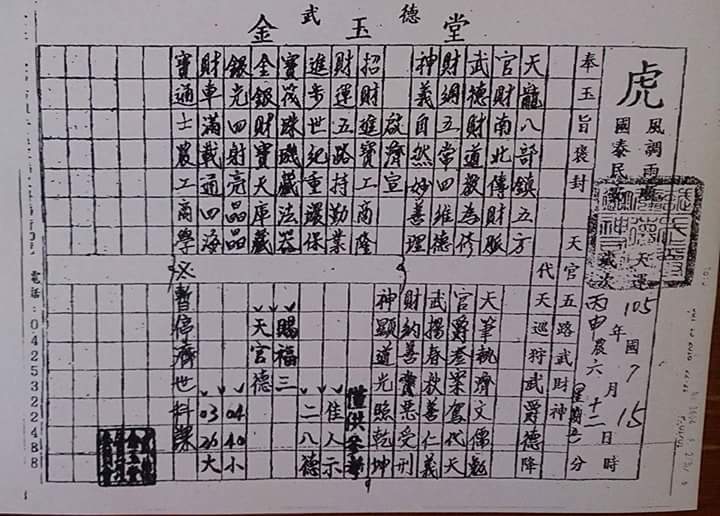 金武玉德堂
虎
風調雨
國泰民
天運
歲次丙申農六十二
105年7月15日時
國
(星期五)分
奉玉旨褒封
天官五路武財神
代天巡狩武爵德降
天龍八部鎮五方
官財南北傳財脈
武德財道教為修
財綱五常四維德
神義自然妙善理
啟濟宣
招財進寶工商隆
財運五路持勤業
進步世紀重環保
寶筏珠璣藏法器
金銀財寶天庫藏
銀光四射亮晶晶
財車滿載通四海
寶通士農工商學
天筆執濟文儒乾
官爵卷案駕代天
武揚春秋善仁義
財納善賞惡受刑
神顯道光照乾坤
僅供參考
佳人示
二八德
賜福三
天官德
04 40 小
03 26 大
暫停濟世科課
電話:0425322488